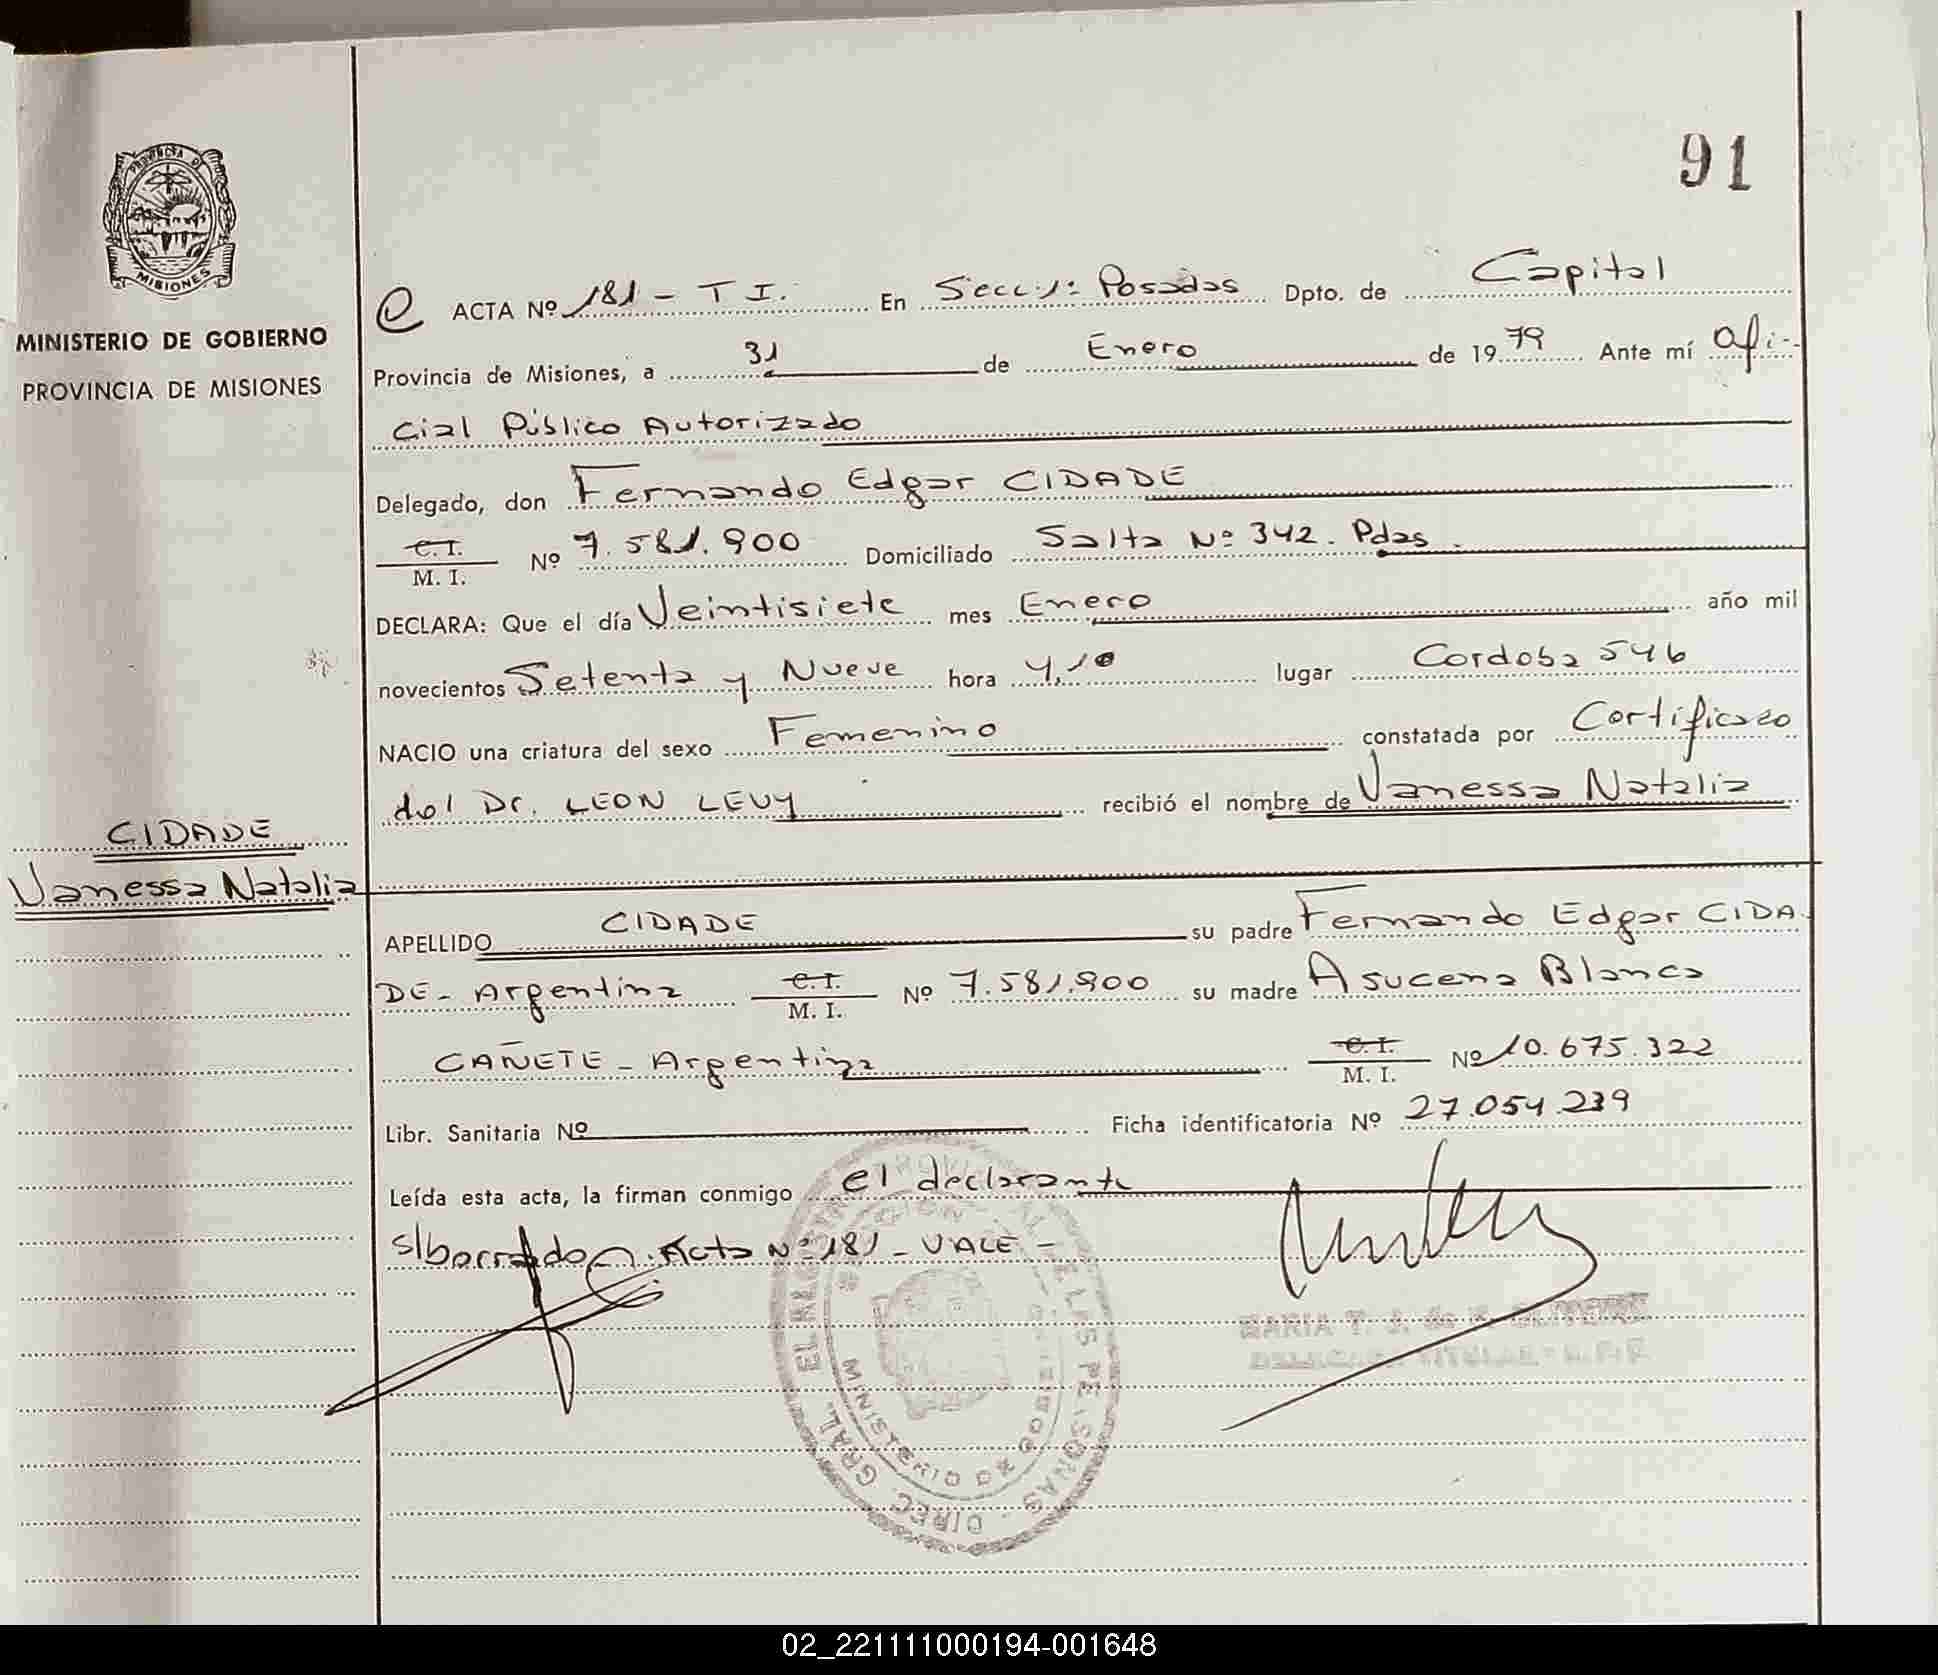 91
PROVINCIA DE
MISIONES
MINISTERIO DE GOBIERNO
PROVINCIA DE MISIONES
ACTA Nº 181 - T I. En Secc. 1ª Posadas Dpto. de Capital
Provincia de Misiones, a 31 de Enero de 1979 Ante mí Ofi-
cial Público Autorizado
Delegado, don Fernando Edgar CIDADE
C. I.
M. I. Nº 7.581.900 Domiciliado Salta Nº 342. Pdas.
DECLARA: Que el día Veintisiete mes Enero año mil
novecientos Setenta y Nueve hora 4,10 lugar Cordoba 546
NACIO una criatura del sexo Femenino constatada por Certificado
del Dr. LEON LEVY recibió el nombre de Vanessa Natalia
CIDADE
Vanessa Natalia
APELLIDO CIDADE su padre Fernando Edgar CIDA-
DE - Argentina C. I.
M. I. Nº 7.581.900 su madre Asucena Blanca
CAÑETE - Argentina C. I.
M. I. Nº 10.675.322
Libr. Sanitaria Nº Ficha identificatoria Nº 27.054.239
Leída esta acta, la firman conmigo el declarante
s/borrado. Acta Nº 181 - VALE -
DIREC. GRAL. DE LAS PERSONAS
MINISTERIO DE GOBIERNO
MARIA T. J. de
DELEGADA TITULAR
02_221111000194-001648